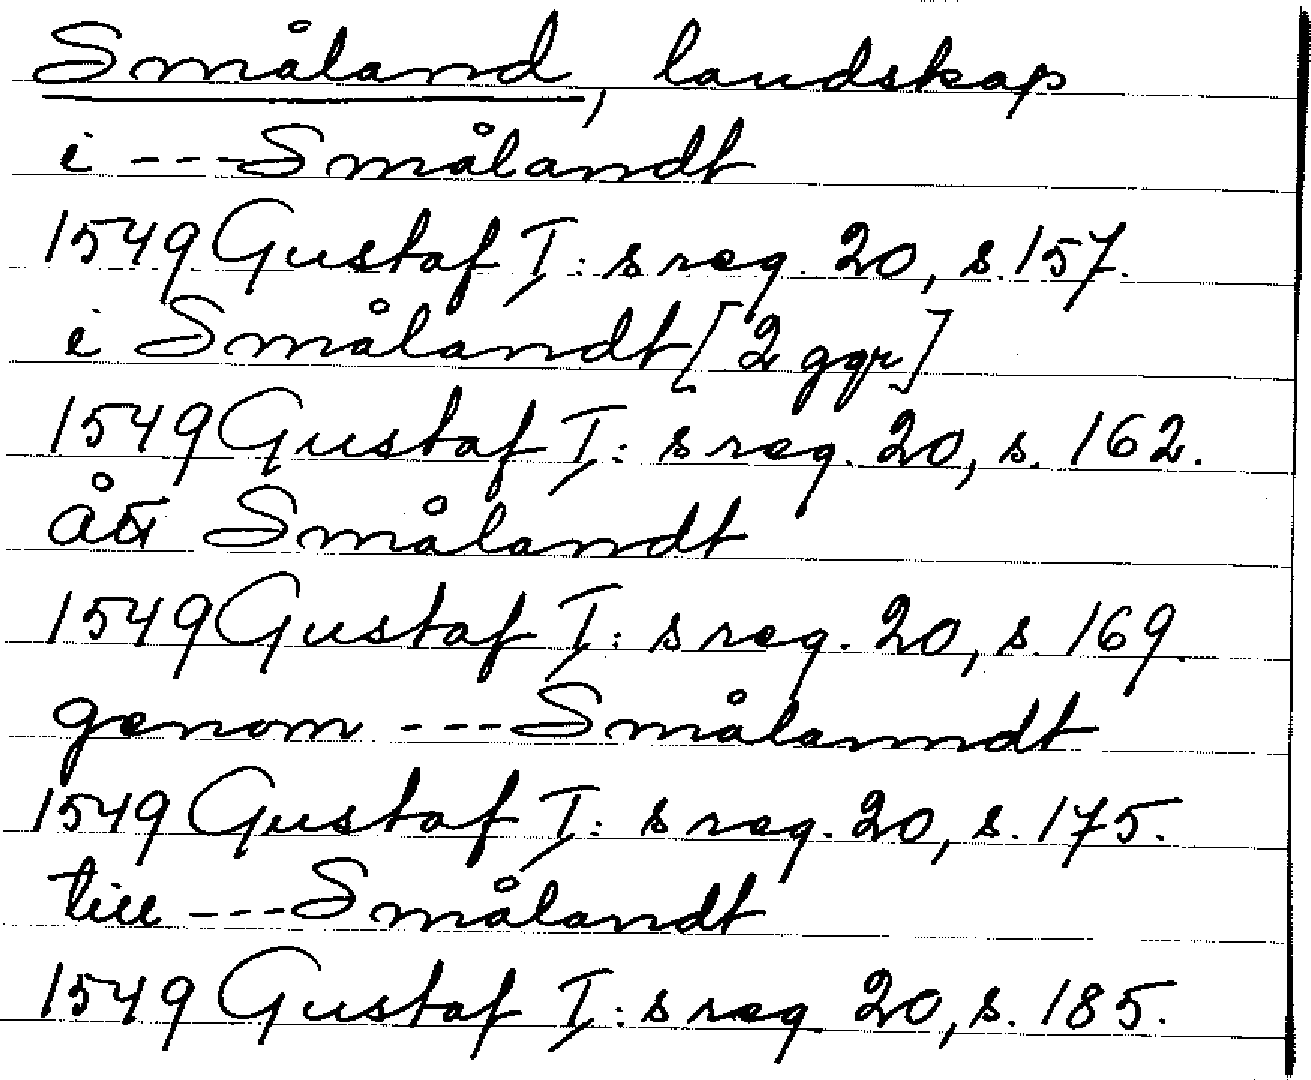 Småland, landskap
i ---Smålandt
1549 Gustaf I: s reg. 20, s. 157.
i Smålandt [2 ggr]
1549 Gustaf I: s reg. 20, s. 162.
ått Smålandt
1549 Gustaf I: s reg. 20, s. 169.
genom ---Smålanndt
1549 Gustaf I: s reg. 20, s. 175.
till ---Smålandt
1549 Gustaf I: s reg 20, s. 185.